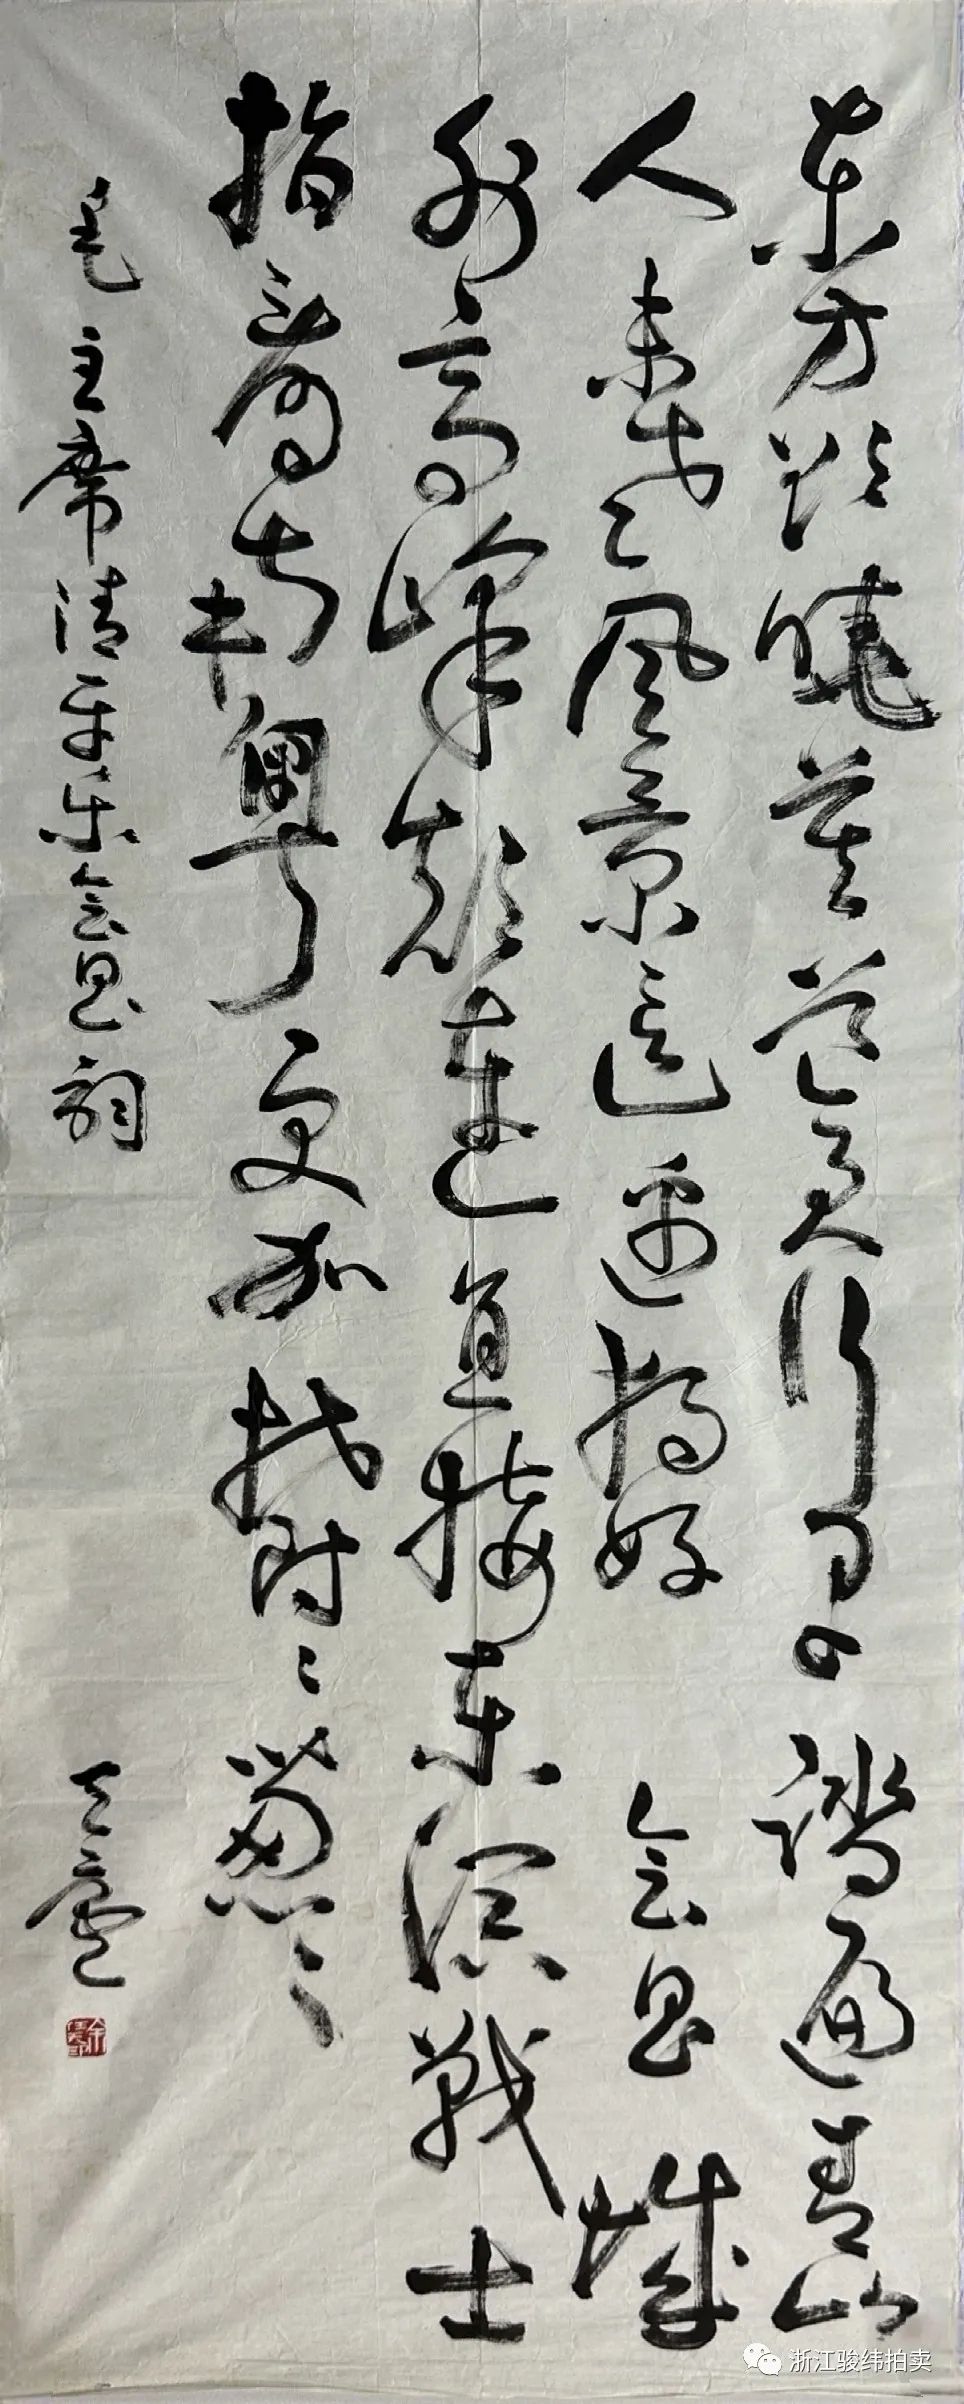 東方欲曉莫道君行早踏遍青山
人未老風景這邊獨好會昌城
外高峰顛連直接東溟戰士
指看南粵更加鬱鬱蔥蔥
毛主席清平樂會昌詞
天廬
余任天印
浙江骏纬拍卖